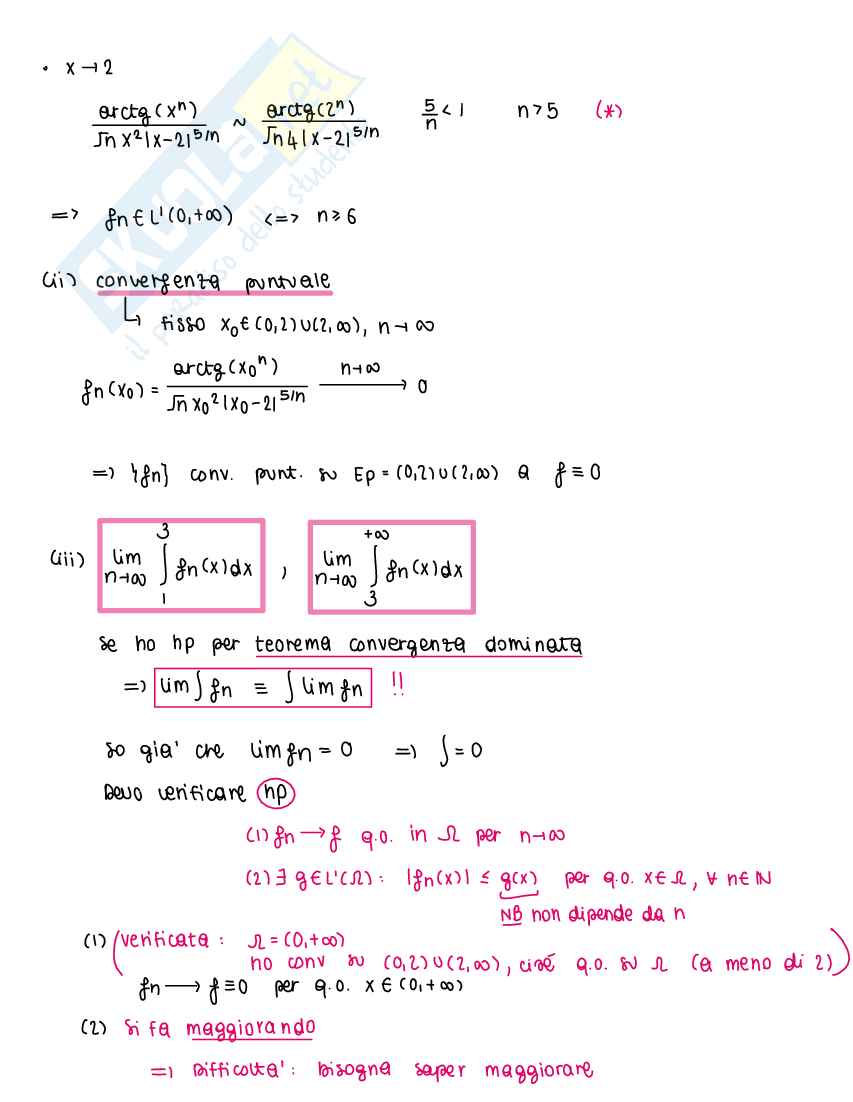 • x → 2
arctg(xⁿ) / √n x² |x-2|^5/n ~ arctg(2ⁿ) / √n 4 |x-2|^5/n    5/n < 1    n > 5    (*)
=> fn ∈ L¹(0,+∞) <=> n ≥ 6
(ii) convergenza puntuale
↳ fisso x₀ ∈ (0,2)∪(2,∞), n → ∞
fn(x₀) = arctg(x₀ⁿ) / √n x₀² |x₀-2|^5/n  n→∞ → 0
=> {fn} conv. punt. su Ep = (0,2)∪(2,∞) a f ≡ 0
(iii) lim n→∞ ∫₁³ fn(x)dx , lim n→∞ ∫₃^+∞ fn(x)dx
se ho hp per teorema convergenza dominata
=> lim ∫ fn ≡ ∫ lim fn !!
so gia' che lim fn = 0 => ∫ = 0
Devo verificare hp
(1) fn → f q.o. in Ω per n→∞
(2) ∃ g ∈ L¹(Ω): |fn(x)| ≤ g(x) per q.o. x ∈ Ω, ∀ n ∈ ℕ
NB non dipende da n
(1) (verificata: Ω = (0,+∞)
ho conv su (0,2)∪(2,∞), cioé q.o. su Ω (a meno di 2))
fn → f ≡ 0 per q.o. x ∈ (0,+∞)
(2) si fa maggiorando
=> Difficolta': bisogna saper maggiorare
SKUOLA.net
il paradiso dello studente